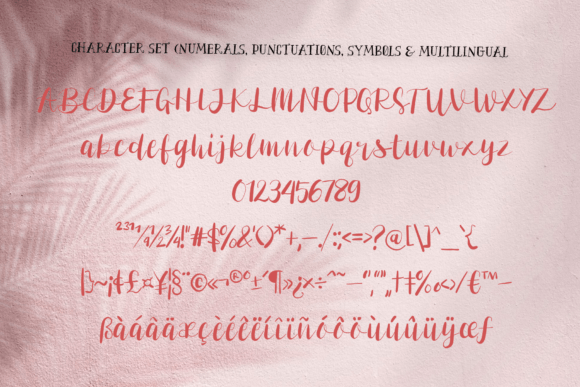 CHARACTER SET (NUMERALS, PUNCTUATIONS, SYMBOLS & MULTILINGUAL
ABCDEFGHIJKLMNOPQRSTUVWXYZ
abcdefghijklmnopqrstuvwxyz
0123456789
²³¹¼½¾!"#$%&'()*+,-./:;<=>?@[\]^_`{
|}~¡¢£¤¥¦§¨©«¬®°±´¶»¿×÷ˆ˜–‘‚“”„†‡‰‹›⁄€™−
ßàáâäæçèéêëíîïñóôöùúûüÿœƒ